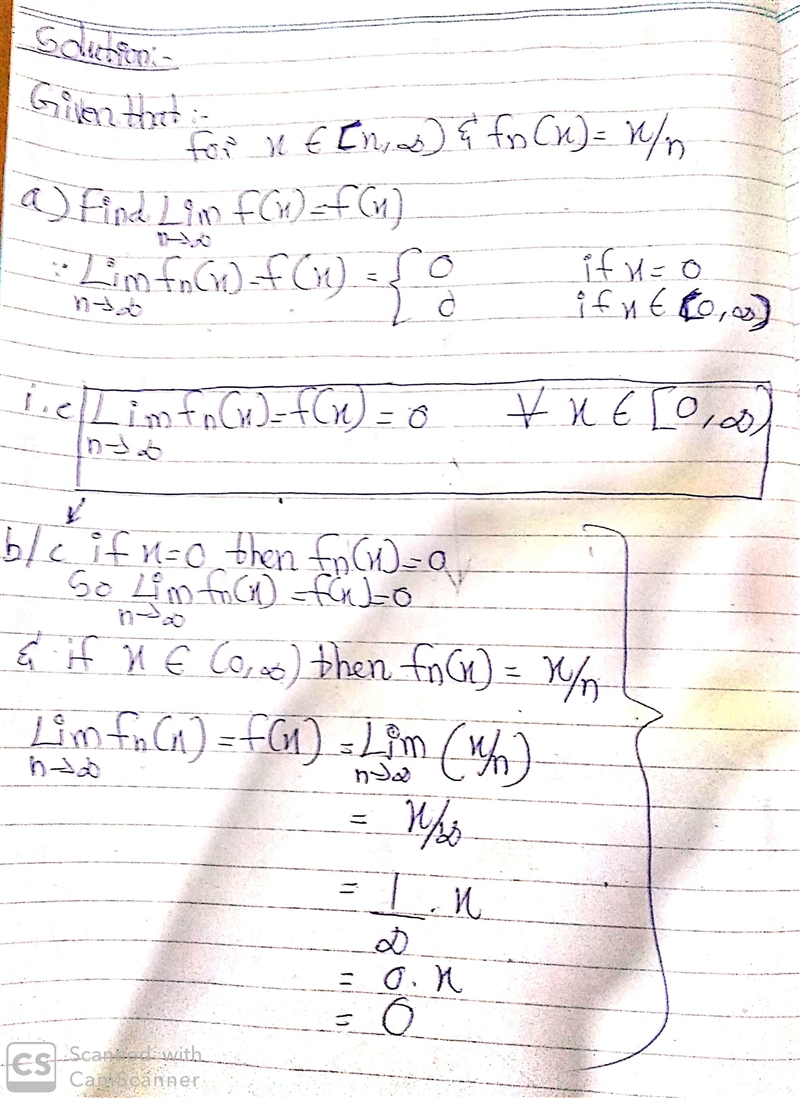 Solution:-
Given that :-
for x ∈ [n, ∞) & fn(x) = x/n
a) Find Lim f(x) = f(x)
n→∞
∵ Lim fn(x) = f(x) = { 0 if x = 0
n→∞ 0 if x ∈ (0, ∞)
i.e Lim fn(x) = f(x) = 0 ∀ x ∈ [0, ∞)
n→∞
b/c if x=0 then fn(x) = 0
So Lim fn(x) = f(x) = 0
n→∞
& if x ∈ (0, ∞) then fn(x) = x/n
Lim fn(x) = f(x) = Lim (x/n)
n→∞ n→∞
= x/∞
= 1/∞ . x
= 0. x
= 0
CS Scanned with
CamScanner